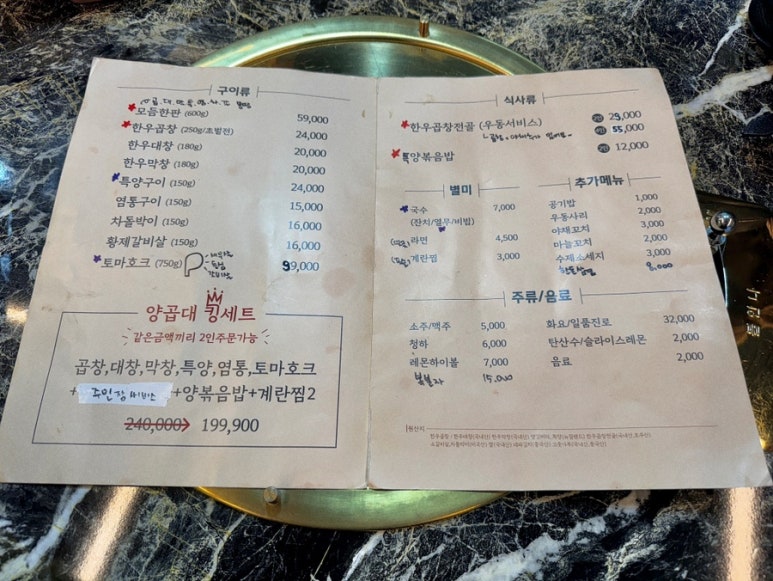 구이류
모듬한판 (600g) 59,000
한우곱창 (250g/초벌전) 24,000
한우대창 (180g) 20,000
한우막창 (180g) 20,000
특양구이 (150g) 24,000
염통구이 (150g) 15,000
차돌박이 (150g) 16,000
황제갈비살 (150g) 16,000
토마호크 (750g) 99,000
양곱대 킹세트
같은금액끼리 2인주문가능
곱창,대창,막창,특양,염통,토마호크
+ +양볶음밥+계란찜2
240,000 199,900
식사류
한우곱창전골 (우동서비스) 29,000
55,000
특양볶음밥 12,000
별미
국수 7,000
(잔치/열무/비빔)
라면 4,500
계란찜 3,000
추가메뉴
공기밥 1,000
우동사리 2,000
야채꼬치 3,000
마늘꼬치 2,000
수제소세지 3,000
8,000
주류/음료
소주/맥주 5,000
청하 6,000
레몬하이볼 7,000
복분자 15,000
화요/일품진로 32,000
탄산수/슬라이스레몬 2,000
음료 2,000
원산지